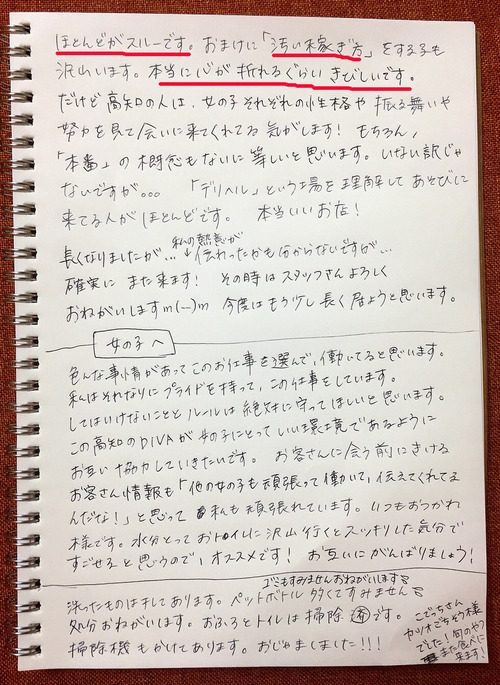 ほとんどがスルーです。おまけに「汚い稼ぎ方」をする子も
沢山います。本当に心が折れるぐらいきびしいです。
だけど高知の人は、女の子それぞれの性格や振る舞いや
努力を見て会いに来てくれてる気がします！もちろん、
「本番」の概念もないに等しいと思います。いない訳じゃ
ないですが。。。「デリヘル」という場を理解してあそびに
来てる人がほとんどです。本当いいお店！
私の熱意が
長くなりましたが…↓伝わったかも分からないですが…
確実にまた来ます！その時はスタッフさんよろしく
おねがいしますm(__)m 今度はもう少し長く居ようと思います。
女の子へ
色んな事情があってこのお仕事を選んで、働いてると思います。
私はそれなりにプライドを持って、この仕事をしています。
してはいけないこととルールは絶対に守ってほしいと思います。
この高知のDIVAが女の子にとっていい環境であるように
お互い協力していきたいです。お客さんに会う前にきける
お客さん情報も「他の女の子も頑張って働いて、伝えてくれてる
んだな！」と思って私も頑張れています。いつもおつかれ
様です。水分とっておトイレに沢山行くとスッキリした気分で
すごせると思うので、オススメです！お互いにがんばりましょう！
ゴミもすみませんおねがいします
洗ったものは干してあります。ペットボトル多くてすみません
処分おねがいします。おふろとトイレは掃除済です。
掃除機もかけてあります。おじゃましました!!!
こごっちさん
カツオごちそう様
でした！旬のやつ
また食べに
来ます！